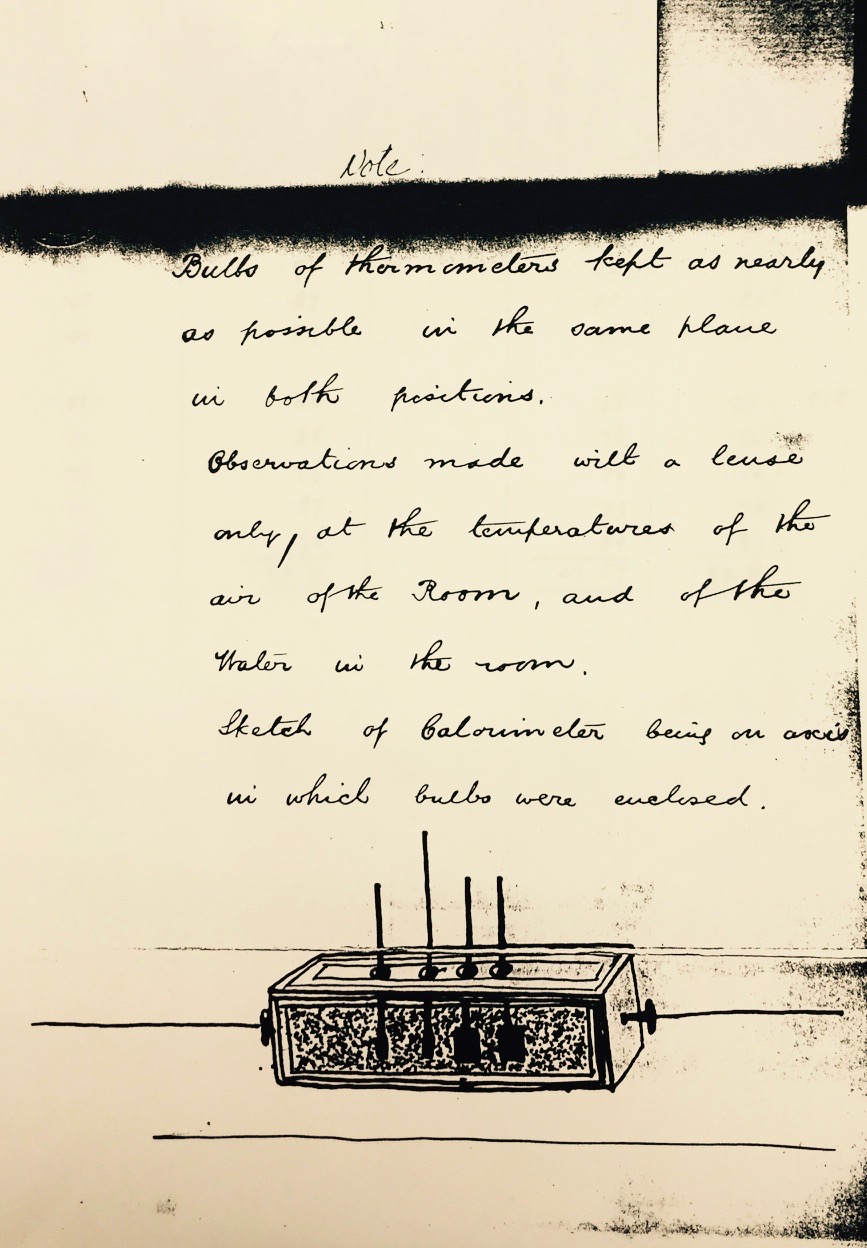 Note:
Bulbs of thermometers kept as nearly
as possible in the same plane
in both positions.
Observations made with a lense
only, at the temperatures of the
air of the Room, and of the
Water in the room.
Sketch of Calorimeter being on axis
in which bulbs were enclosed.